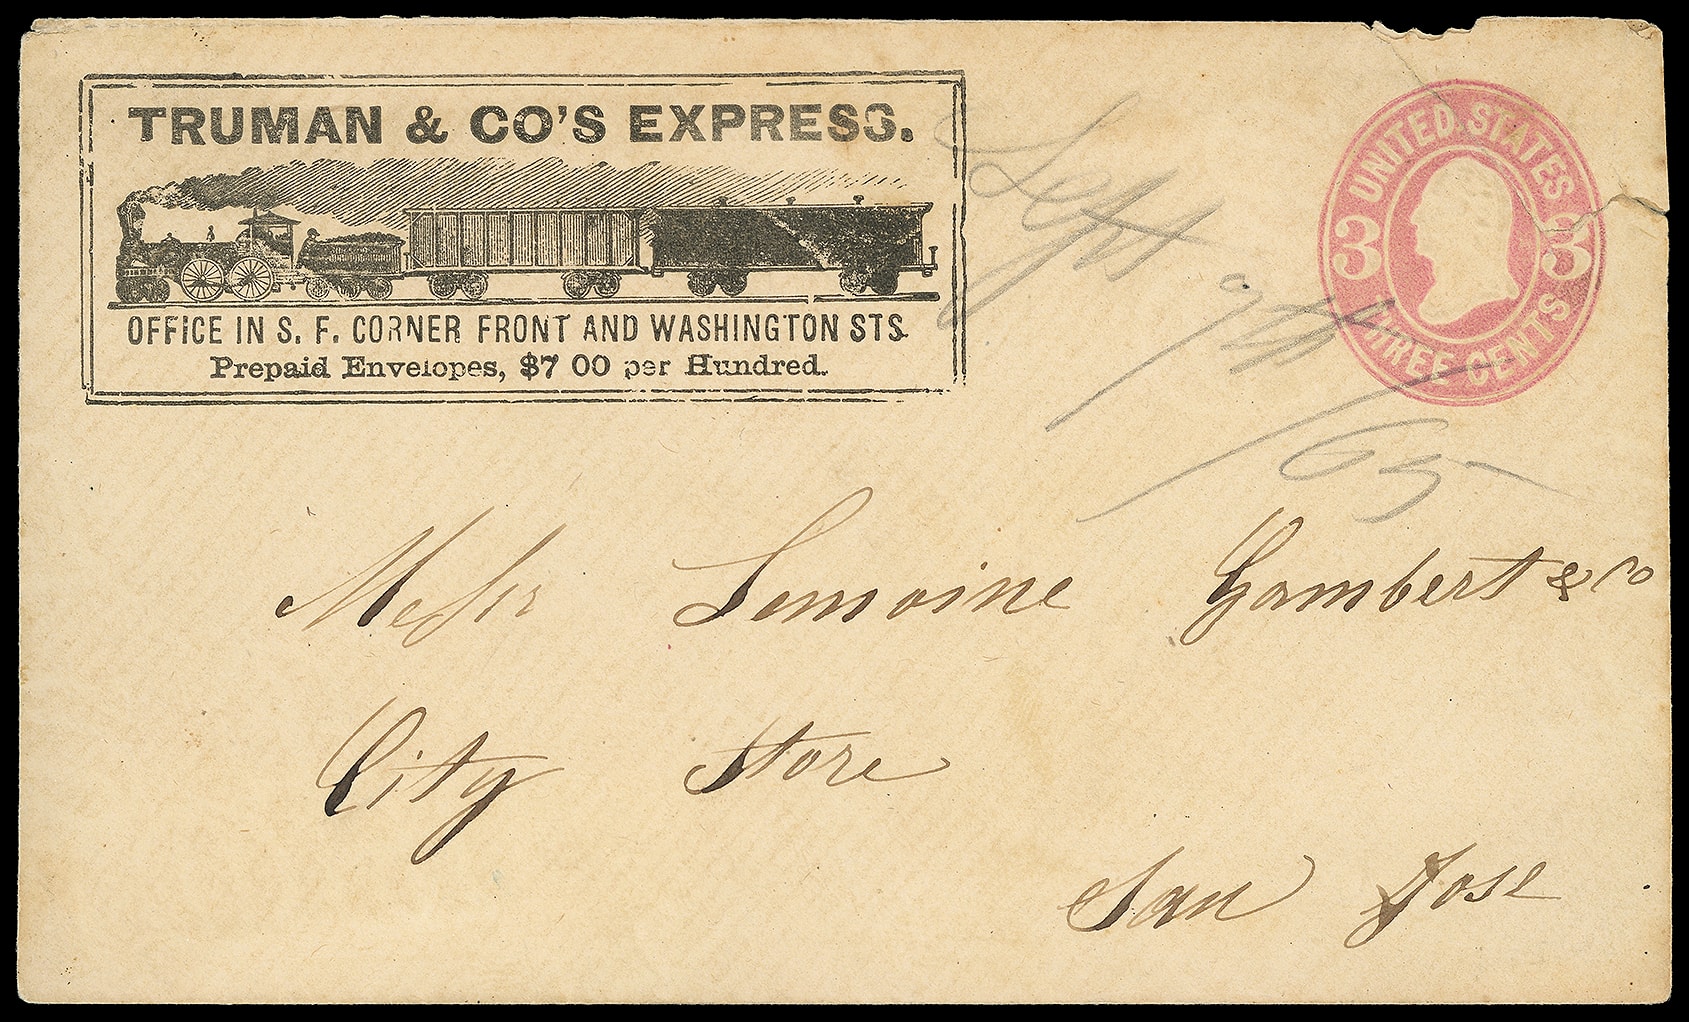 TRUMAN & CO'S EXPRESS.
OFFICE IN S. F. CORNER FRONT AND WASHINGTON STS.
Prepaid Envelopes, $7 00 per Hundred.
UNITED STATES
3 3
THREE CENTS
Sept 9th
/65
Messr Lemoine Gambert & Co
City Store
San Jose